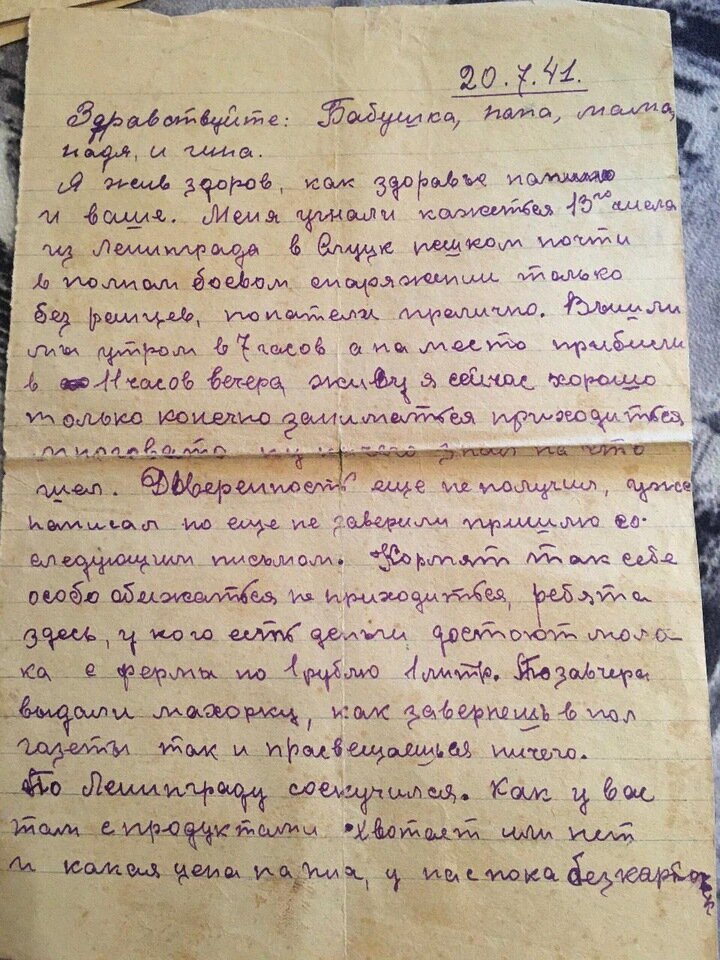 20.7.41.
Здравствуйте: Бабушка, папа, мама,
надя, и нина.
Я жив здоров, как здоровье папино
и ваше. Меня угнали кажеться 13го числа
из Ленинграда в Слуцк пешком почти
в полнам боевом снаряжении только
без ранцев, попатели прилично. Вышли
мы утром в 7 часов а на место прибыли
в 11 часов вечера, живу я сейчас хорошо
только конечно заниматься приходиться
многовато ну ничего знал на что
шел. Доверенность еще не получил, уже
написал но еще не заверили пришлю со
следующим письмом. Кормят так себе
особо обижаться не приходиться, ребята
здесь, у кого есть деньги достоют моло-
ка с фермы по 1 рублю 1 литр. Позавчера
выдали махорку, как завернешь в пол
газеты так и прасвещаешься ничего.
По Ленинграду соскучился. Как у вас
там с продуктами хвотает или нет
и какая цена на них, у нас пока без карточек